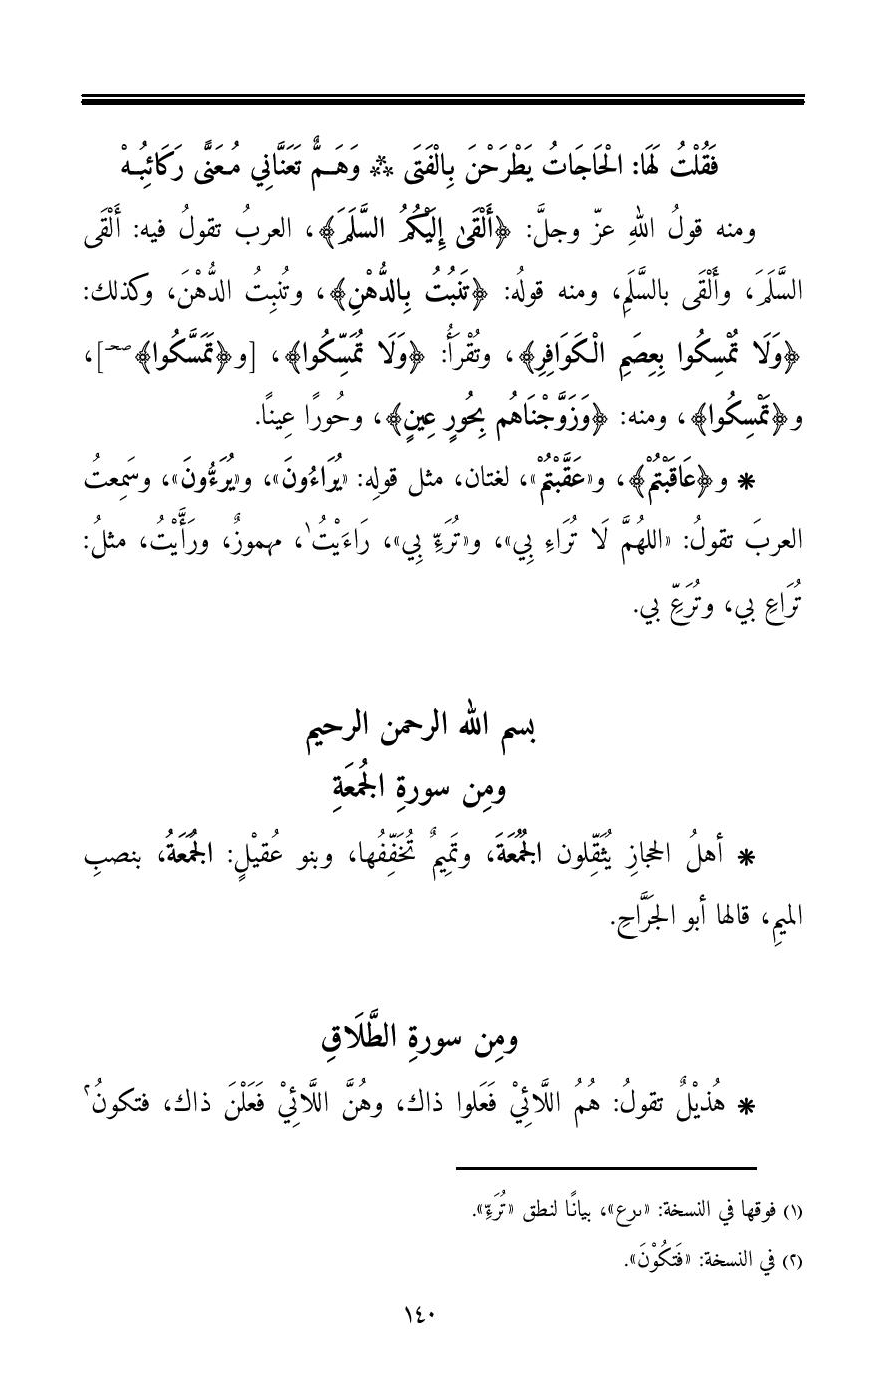 فَقُلْتُ لَهَا: الْحَاجَاتُ يَطْرَحْنَ بِالْفَتَى ** وَهَـمٌّ تَعَنَّانِي مُـعَنًّى رَكَائِبُـهْ
ومنه قولُ اللهِ عزّ وجلَّ: ﴿أَلْقَىٰ إِلَيْكُمُ السَّلَمَ﴾، العربُ تقولُ فيه: أَلْقَى
السَّلَمَ، وأَلْقَى بالسَّلَمِ، ومنه قولُه: ﴿تَنبُتُ بِالدُّهْنِ﴾، وتُنبِتُ الدُّهْنَ، وكذلك:
﴿وَلَا تُمْسِكُوا بِعِصَمِ الْكَوَافِرِ﴾، وتُقْرَأُ: ﴿وَلَا تُمَسِّكُوا﴾، [و﴿تَمَسَّكُوا﴾صحـ]،
و﴿تَمْسِكُوا﴾، ومنه: ﴿وَزَوَّجْنَاهُم بِحُورٍ عِينٍ﴾، وحُورًا عِينًا.
* و﴿عَاقَبْتُمْ﴾، و«عَقَّبْتُمْ»، لغتان، مثل قولِه: «يُرَاءُونَ»، و«يُرَءُّونَ»، وسَمِعتُ
العربَ تقولُ: «اللهُمَّ لَا تُرَاءِ بِي»، و«تُرَءِّ بِي»، رَاءَيْتُ١، مهموزٌ، ورَأَّيْتُ، مثلُ:
تُرَاعِ بي، وتُرَعِّ بي.
بسم الله الرحمن الرحيم
ومِن سورةِ الجُمعَةِ
* أهلُ الحجازِ يُثَقِّلون الجُمُعَةَ، وتَمِيمٌ تُخَفِّفُها، وبنو عُقيْلٍ: الجُمَعَةُ، بنصبِ
الميمِ، قالها أبو الجَرَّاحِ.
ومِن سورةِ الطَّلَاقِ
* هُذيْلٌ تقولُ: هُمُ اللَّائِيْ فَعَلوا ذاك، وهُنَّ اللَّائِيْ فَعَلْنَ ذاك، فتكونُ٢
(١) فوقها في النسخة: «ىرع»، بيانًا لنطق «تُرَءِّ».
(٢) في النسخة: «فَتكُوْنَ».
١٤٠